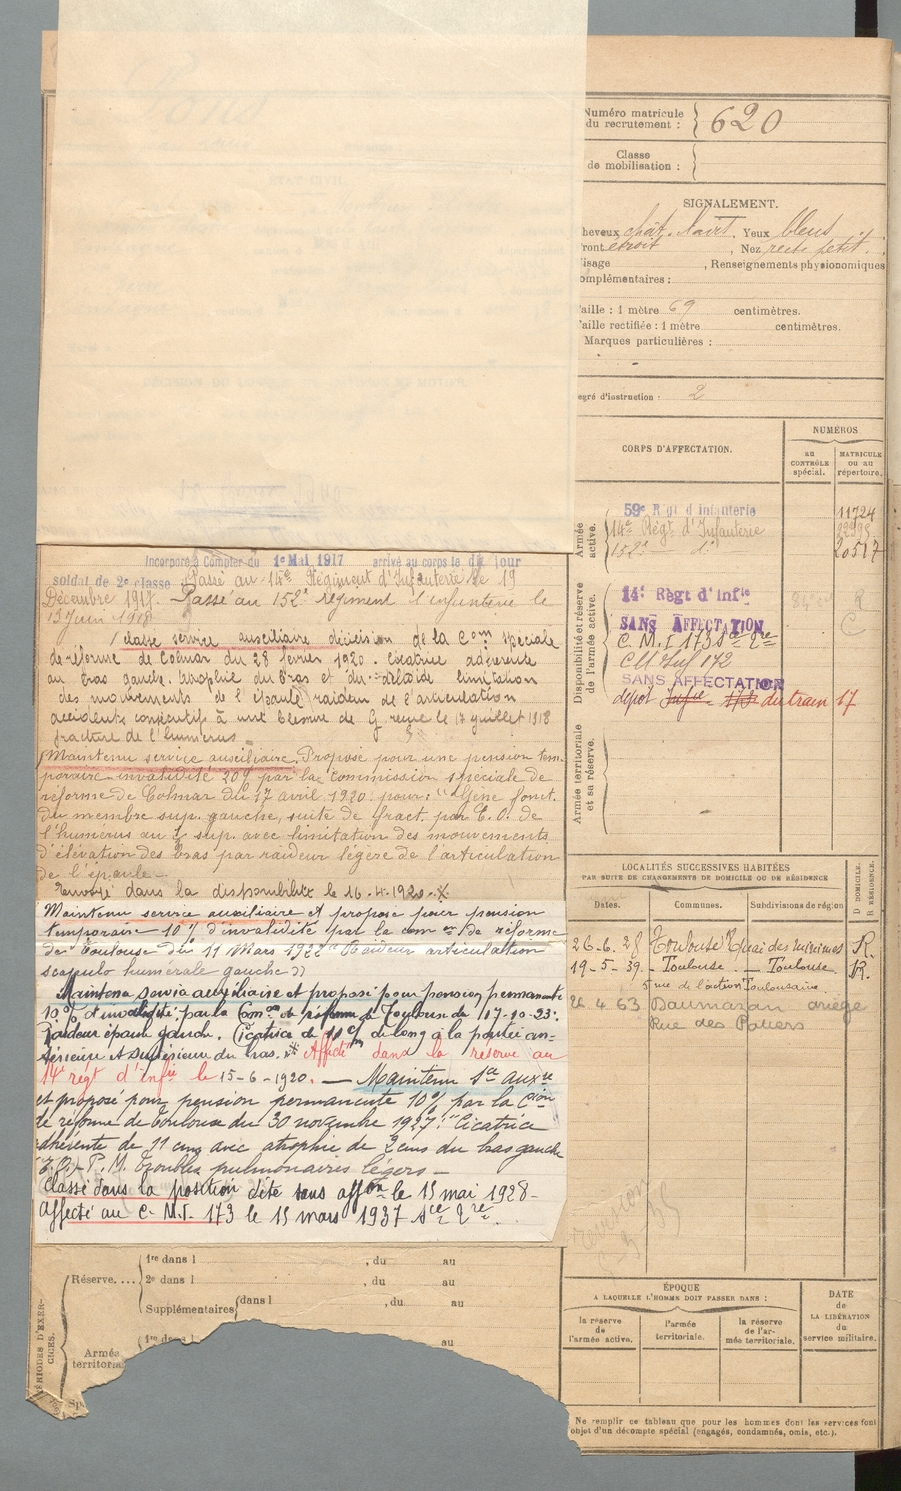 Numéro matricule
du recrutement :
620
Classe
de mobilisation :
SIGNALEMENT.
heveux chât. Yeux bleus
ront étroit , Nez rect. petit.
isage , Renseignements physionomiques
omplémentaires :
aille : 1 mètre 69 centimètres.
aille rectifiée : 1 mètre centimètres.
Marques particulières :
egré d'instruction : 2
CORPS D'AFFECTATION.
NUMÉROS
au
CONTRÔLE
spécial.
MATRICULE
ou au
répertoire.
Armée
active.
59e R gt d Infanterie 11724
14e Régt d'Infanterie
152e do 20517
Disponibilité et réserve
de l'armée active.
14e Régt d'Infie
SANS AFFECTATION
C. M. I 173 Sce 2re
172
SANS AFFECTATION
dépot Infie 173 du train 17
Armée territoriale
et sa réserve.
Incorporé à Compter du 1er Mai 1917 arrivé au corps le dit jour
soldat de 2e classe Passé au 14e Régiment d'Infanterie le 19
Décembre 1917. Passé au 152e régiment d'infanterie le
13 Juin 1918
Classé service auxiliaire décision de la Com spéciale
de réforme de Colmar du 28 février 1920. Cicatrice adhérente
au bras gauche. atrophie du bras et du deltoïde limitation
des mouvements de l'épaule raideur de l'articulation
accidents consécutif à une blessure de G reçue le 17 juillet 1918
fracture de l'humérus
Maintenu service auxiliaire. Proposé pour une pension tem-
poraire invalidité 20% par la commission spéciale de
réforme de Colmar du 17 avril 1920 pour : "Gêne fonct.
du membre sup. gauche, suite de fract. par E. O. de
l'humérus au 1/3 sup. avec limitation des mouvements
d'élévation des bras par raideur légère de l'articulation
de l'épaule.
Renvoyé dans la disponibilité le 16.4.1920.
Maintenu service auxiliaire et proposé pour pension
temporaire 10% d'invalidité par la com on de réforme
de Toulouse du 11 Mars 1922 "Raideur articulation
scapulo humérale gauche"
Maintenu service auxiliaire et proposé pour pension permanente
10% d'invalidité par la Comon de réforme de Toulouse du 17-10-23.
Raideur épaule gauche. Cicatrice de 10 cm de long à la partie an-
térieure et supérieure du bras. Affecté dans la réserve au
14e régt d'infie le 15-6-1920. — Maintenu sce auxre
et proposé pour pension permanente 10% par la Cion
de réforme de Toulouse du 30 novembre 1927 : "Cicatrice
adhérente de 11 cms avec atrophie de 2 cms du bras gauche
P. M. Troubles pulmonaires légers —
Classé dans la position dite sans affon le 15 mai 1928 -
Affecté au C. M. I. 173 le 15 mars 1937 sce 2re.
LOCALITÉS SUCCESSIVES HABITÉES
PAR SUITE DE CHANGEMENTS DE DOMICILE OU DE RÉSIDENCE
Dates. Communes. Subdivisions de région
D DOMICILE.
R RÉSIDENCE.
26-6.28 Toulouse Quai des Minimes R.
19-5-39. - Toulouse — Toulouse R.
5 rue de l'action Toulousaine
26 4 63 Daumazan ariège
Rue des Potiers
revision
PÉRIODES D'EXER-
CICES.
Réserve....
1re dans l , du au
2e dans l , du au
Supplémentaires dans l , du au
Armée
territoria
1re dans l au
Sp
ÉPOQUE
A LAQUELLE L'HOMME DOIT PASSER DANS :
la réserve
de
l'armée active.
l'armée
territoriale.
la réserve
de l'ar-
mée territoriale.
DATE
de
LA LIBÉRATION
du
service militaire.
Ne remplir ce tableau que pour les hommes dont les services font
objet d'un décompte spécial (engagés, condamnés, omis, etc.).